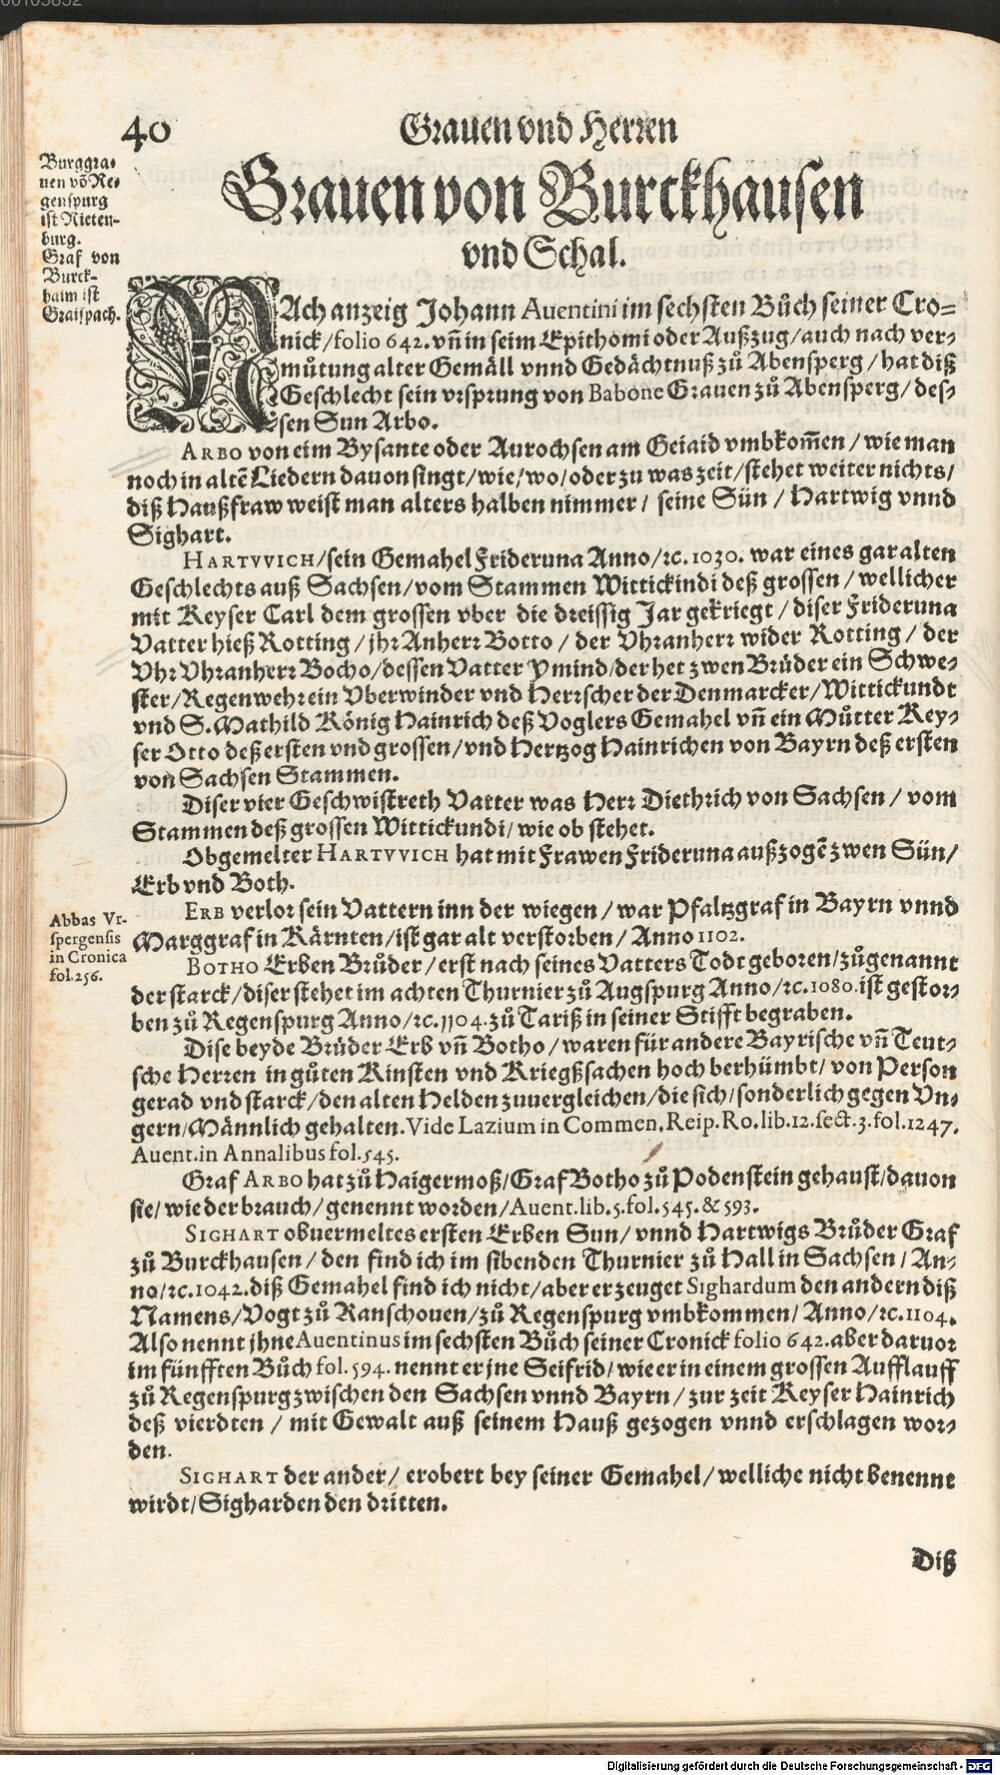 40
Grauen vnd Herren
Burggra-
uen võ Re-
genspurg
ist Rieten-
burg.
Graf von
Burck-
haim ist
Graispach.
Grauen von Burckhausen
vnd Schal.
NAch anzeig Johann Auentini im sechsten Bůch seiner Cro-
nick/folio 642. vñ in seim Epithomi oder Außzug/auch nach ver-
můtung alter Gemäll vnnd Gedächtnuß zů Abensperg/hat diß
Geschlecht sein vrsprung von Babone Grauen zů Abensperg/des-
sen Sun Arbo.
ARBO von eim Bysante oder Aurochsen am Geiaid vmbkom̃en/wie man
noch in altẽ Liedern dauon singt/wie/wo/oder zu was zeit/stehet weiter nichts/
diß Haußfraw weist man alters halben nimmer/ seine Sün/ Hartwig vnnd
Sighart.
HARTVVICH/sein Gemahel Frideruna Anno/ꝛc. 1030. war eines gar alten
Geschlechts auß Sachsen/vom Stammen Wittickindi deß grossen/wellicher
mit Keyser Carl dem grossen vber die dreissig Jar gekriegt/diser Frideruna
Vatter hieß Rotting/jhr Anherr Botto/der Vhranherr wider Rotting/der
Vhr Vhranherr Bocho/dessen Vatter Ymind/der het zwen Brüder ein Schwe-
ster/Regenwehr ein Vberwinder vnd Herrscher der Denmarcker/Wittickundt
vnd S. Mathild König Hainrich deß Voglers Gemahel vñ ein Můtter Key-
ser Otto deß ersten vnd grossen/vnd Hertzog Hainrichen von Bayrn deß ersten
von Sachsen Stammen.
Diser vier Geschwistreth Vatter was Herr Diethrich von Sachsen/vom
Stammen deß grossen Wittickundi/wie ob stehet.
Obgemelter HARTVVICH hat mit Frawen Frideruna außzogẽ zwen Sün/
Erb vnd Both.
Abbas Vr-
spergensis
in Cronica
fol. 256.
ERB verlor sein Vattern inn der wiegen/war Pfaltzgraf in Bayrn vnnd
Marggraf in Kärnten/ist gar alt verstorben/Anno 1102.
BOTHO Erben Brůder/erst nach seines Vatters Todt geboren/zůgenannt
der starck/diser stehet im achten Thurnier zů Augspurg Anno/ꝛc. 1080. ist gestor-
ben zů Regenspurg Anno/ꝛc. 1104. zů Tariß in seiner Stifft begraben.
Dise beyde Brüder Erb vñ Botho/waren für andere Bayrische vñ Teut-
sche Herren in gůten Kinsten vnd Kriegßsachen hoch berhümbt/von Person
gerad vnd starck/den alten Helden zuuergleichen/die sich/sonderlich gegen Vn-
gern/Männlich gehalten. Vide Lazium in Commen, Reip. Ro. lib. 12. sect. 3. fol. 1247.
Auent. in Annalibus fol. 545.
Graf ARBO hat zů Haigermoß/Graf Botho zů Podenstein gehaust/dauon
sie/wie der brauch/genennt worden/Auent. lib. 5. fol. 545. & 593.
SIGHART obuermeltes ersten Erben Sun/vnnd Hartwigs Brůder Graf
zů Burckhausen/den find ich im sibenden Thurnier zů Hall in Sachsen/An-
no/ꝛc. 1042. diß Gemahel find ich nicht/aber er zeuget Sighardum den andern diß
Namens/Vogt zů Ranschouen/zů Regenspurg vmbkommen/Anno/ꝛc. 1104.
Also nennt jhne Auentinus im sechsten Bůch seiner Cronick folio 642. aber daruor
im fünfften Bůch fol. 594. nennt er jne Seifrid/wie er in einem grossen Aufflauff
zů Regenspurg zwischen den Sachsen vnnd Bayrn/zur zeit Keyser Hainrich
deß vierdten/mit Gewalt auß seinem Hauß gezogen vnnd erschlagen wor-
den.
SIGHART der ander/erobert bey seiner Gemahel/welliche nicht benennt
wirdt/Sigharden den dritten.
Diß
Digitalisierung gefördert durch die Deutsche Forschungsgemeinschaft - DFG